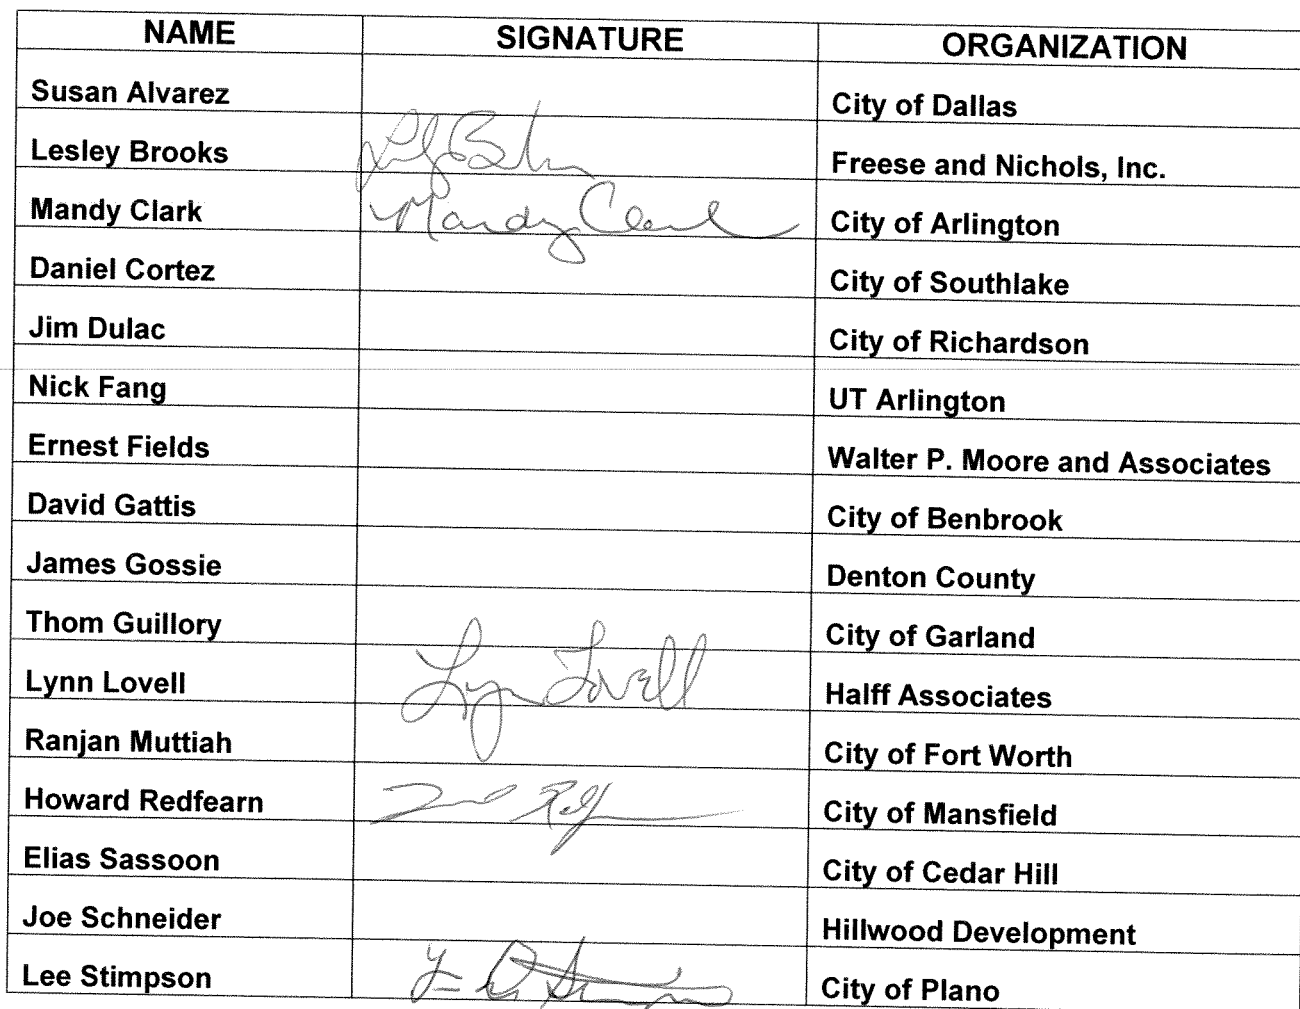 NAME SIGNATURE ORGANIZATION
Susan Alvarez City of Dallas
Lesley Brooks Freese and Nichols, Inc.
Mandy Clark Mandy Clark City of Arlington
Daniel Cortez City of Southlake
Jim Dulac City of Richardson
Nick Fang UT Arlington
Ernest Fields Walter P. Moore and Associates
David Gattis City of Benbrook
James Gossie Denton County
Thom Guillory City of Garland
Lynn Lovell Lynn Lovell Halff Associates
Ranjan Muttiah City of Fort Worth
Howard Redfearn City of Mansfield
Elias Sassoon City of Cedar Hill
Joe Schneider Hillwood Development
Lee Stimpson City of Plano